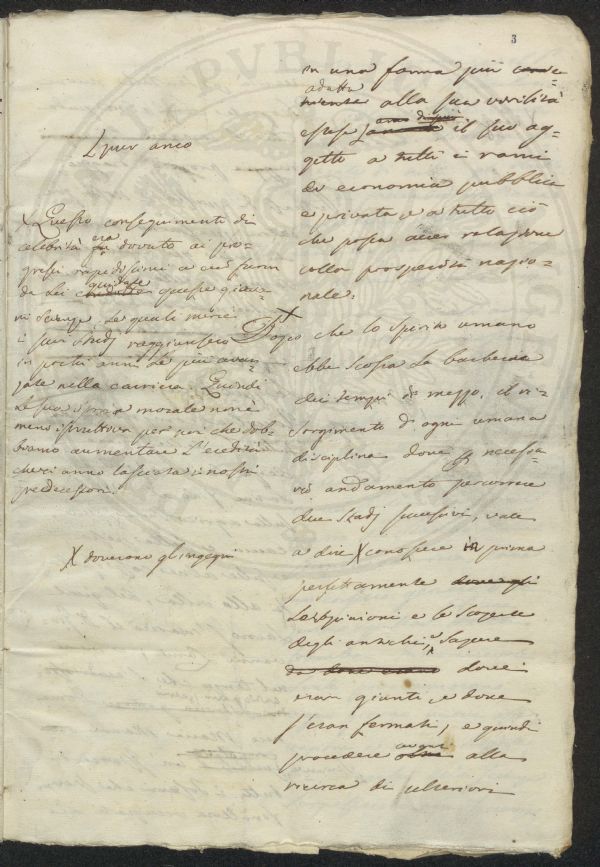 3
in una forma più
adatta
alla sua virilità
estese il suo og-
getto a tutti i rami
di economia pubblica
e privata e a tutto ciò
che possa aver relazione
colla prosperità nazio-
nale.
Dopo che lo spirito umano
ebbe scossa la barbarie
dei tempi di mezzo, il ri-
sorgimento di ogni umana
disciplina dovè per necessa-
rio andamento percorrere
due stadj successivi, vale
a dire X conoscere in prima
perfettamente dovean gli
le opinioni e le scoperte
degli antichi, e sapere
dove
eran giunti, e dove
s'eran fermati, e quindi
procedere alla
ricerca di ulteriori
X Questo conseguimento di
celebrità era dovuto ai pro-
gressi rapidissimi a cui furon
da lei guidate queste
scienze le quali mercè
i suoi studj raggiunsero
in pochi anni le più avan-
zate nella carriera. Quindi
la sua storia morale non è
meno istruttiva per noi che dob-
biamo aumentare l'eredità
che ci anno lasciata i nostri
predecessori.
X doverono gl'ingegni